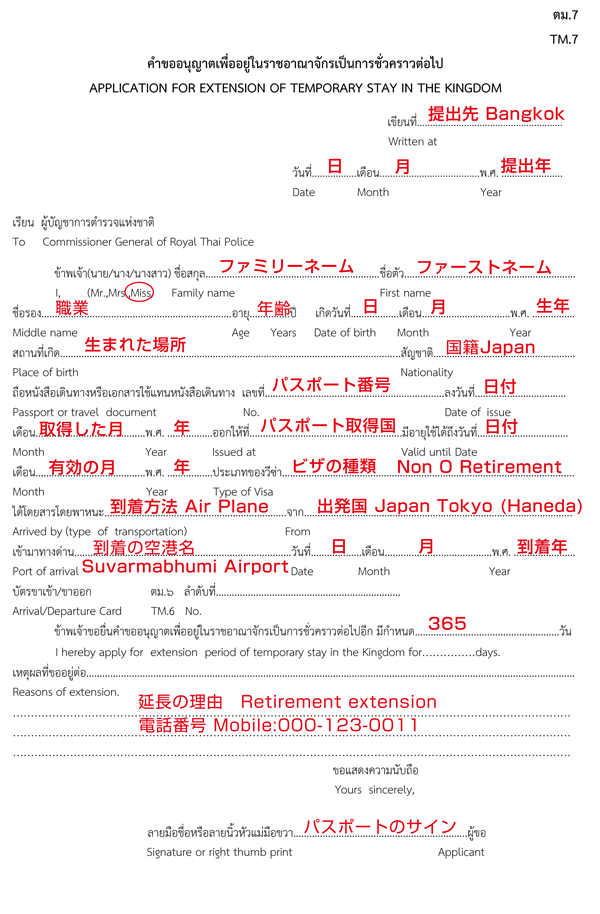 ตม.7
TM.7
คำขออนุญาตเพื่ออยู่ในราชอาณาจักรเป็นการชั่วคราวต่อไป
APPLICATION FOR EXTENSION OF TEMPORARY STAY IN THE KINGDOM
เขียนที่ 提出先 Bangkok
Written at
วันที่ 日 เดือน 月 พ.ศ. 提出年
Date Month Year
เรียน ผู้บัญชาการตำรวจแห่งชาติ
To Commissioner General of Royal Thai Police
ข้าพเจ้า(นาย/นาง/นางสาว) ชื่อสกุล ファミリーネーム ชื่อตัว ファーストネーム
I, (Mr.,Mrs,Miss) Family name First name
ชื่อรอง 職業 อายุ 年齢 ปี เกิดวันที่ 日 เดือน 月 พ.ศ. 生年
Middle name Age Years Date of birth Month Year
สถานที่เกิด 生まれた場所 สัญชาติ 国籍Japan
Place of birth Nationality
ถือหนังสือเดินทางหรือเอกสารใช้แทนหนังสือเดินทาง เลขที่ パスポート番号 ลงวันที่ 日付
Passport or travel document No. Date of issue
เดือน 取得した月 พ.ศ. 年 ออกให้ที่ パスポート取得国 มีอายุใช้ได้ถึงวันที่ 日付
Month Year Issued at Valid until Date
เดือน 有効の月 พ.ศ. 年 ประเภทของวีซ่า ビザの種類 Non O Retirement
Month Year Type of Visa
ได้โดยสารโดยพาหนะ 到着方法 Air Plane จาก 出発国 Japan Tokyo (Haneda)
Arrived by (type of transportation) From
เข้ามาทางด่าน 到着の空港名 วันที่ 日 เดือน 月 พ.ศ. 到着年
Port of arrival Suvarmabhumi Airport Date Month Year
บัตรขาเข้า/ขาออก ตม.๖ ลำดับที่
Arrival/Departure Card TM.6 No.
ข้าพเจ้าขอยื่นคำขออนุญาตเพื่ออยู่ในราชอาณาจักรเป็นการชั่วคราวต่อไปอีก มีกำหนด 365 วัน
I hereby apply for extension period of temporary stay in the Kingdom for……………days.
เหตุผลที่ขออยู่ต่อ
Reasons of extension.
延長の理由 Retirement extension
電話番号 Mobile:000-123-0011
ขอแสดงความนับถือ
Yours sincerely,
ลายมือชื่อหรือลายนิ้วหัวแม่มือขวา パスポートのサイン ผู้ขอ
Signature or right thumb print Applicant